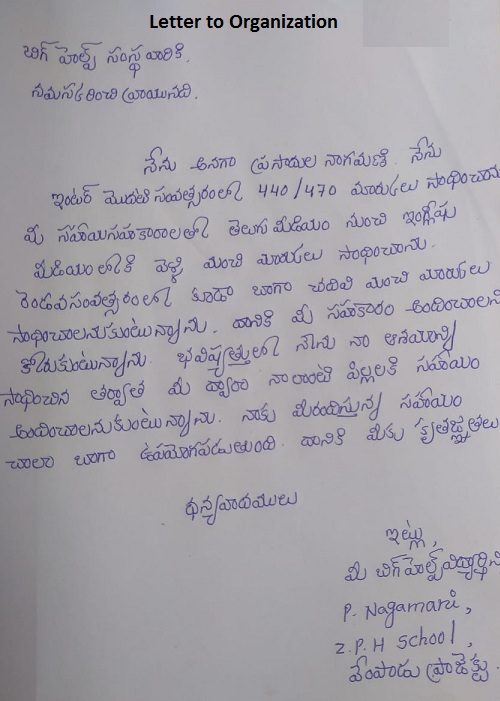 Letter to Organization
బిగ్ హెల్ప్ సంస్థ వారికి,
నమస్కరించి వ్రాయునది.
నేను అనగా ప్రసాదుల నాగమణి. నేను
ఇంటర్ మొదటి సంవత్సరంలో 440/470 మార్కులు సాధించాను
మీ సహాయసహకారాలతో తెలుగు మీడియం నుంచి ఇంగ్లీషు
మీడియంలోకి వెళ్ళి మంచి మార్కులు సాధించాను.
రెండవసంవత్సరంలో కూడా బాగా చదివి మంచి మార్కులు
సాధించాలనుకుంటున్నాను. దానికి మీ సహకారం అందించాలని
కోరుకుంటున్నాను. భవిష్యత్తులో నేను నా ఆశయాన్ని
సాధించిన తర్వాత మీ ద్వారా నాలాంటి పిల్లలకి సహాయం
అందించాలనుకుంటున్నాను. నాకు మీరందిస్తున్న సహాయం
చాలా బాగా ఉపయోగపడుతుంది. దానికి మీకు కృతజ్ఞతలు
ధన్యవాదములు
ఇట్లు,
మీ బిగ్ హెల్ప్ విద్యార్థిని
P. Nagamani,
Z.P.H School,
వేంపాడు ప్రాజెక్టు.